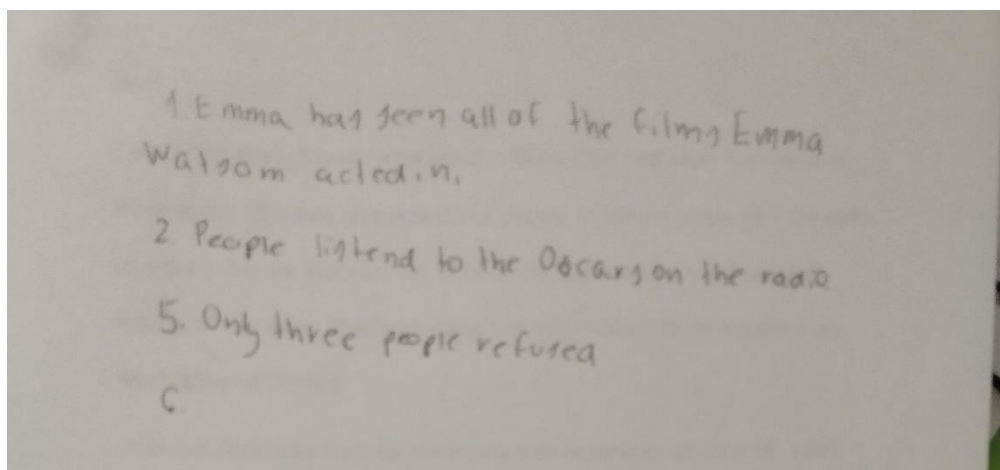 1. Emma has seen all of the films Emma
Watsom acted in.
2. People listend to the Oscars on the radio
5. Only three people refused
6